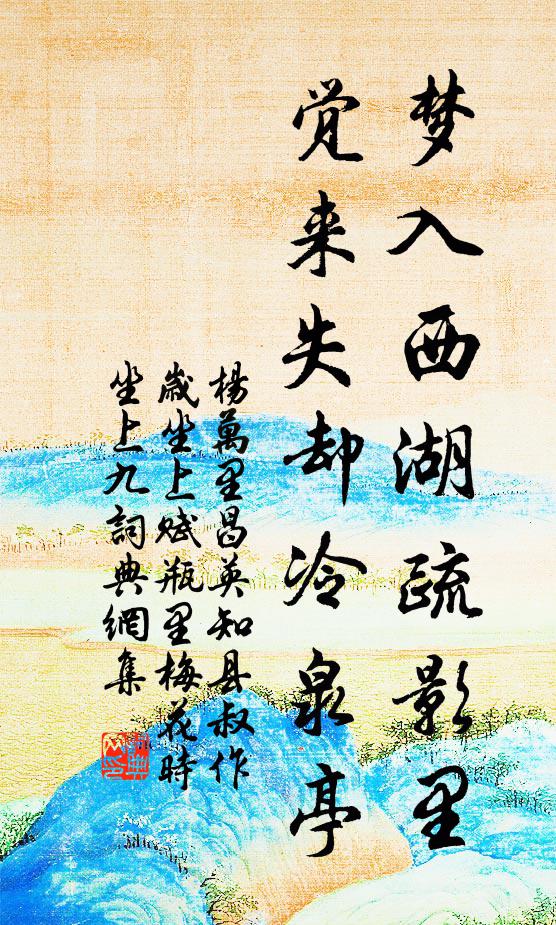 梦入西湖疏影里
觉来失却冷泉亭
楊萬里昌英知县叔作
歲坐上賦瓶里梅花時
坐上九詞典網集